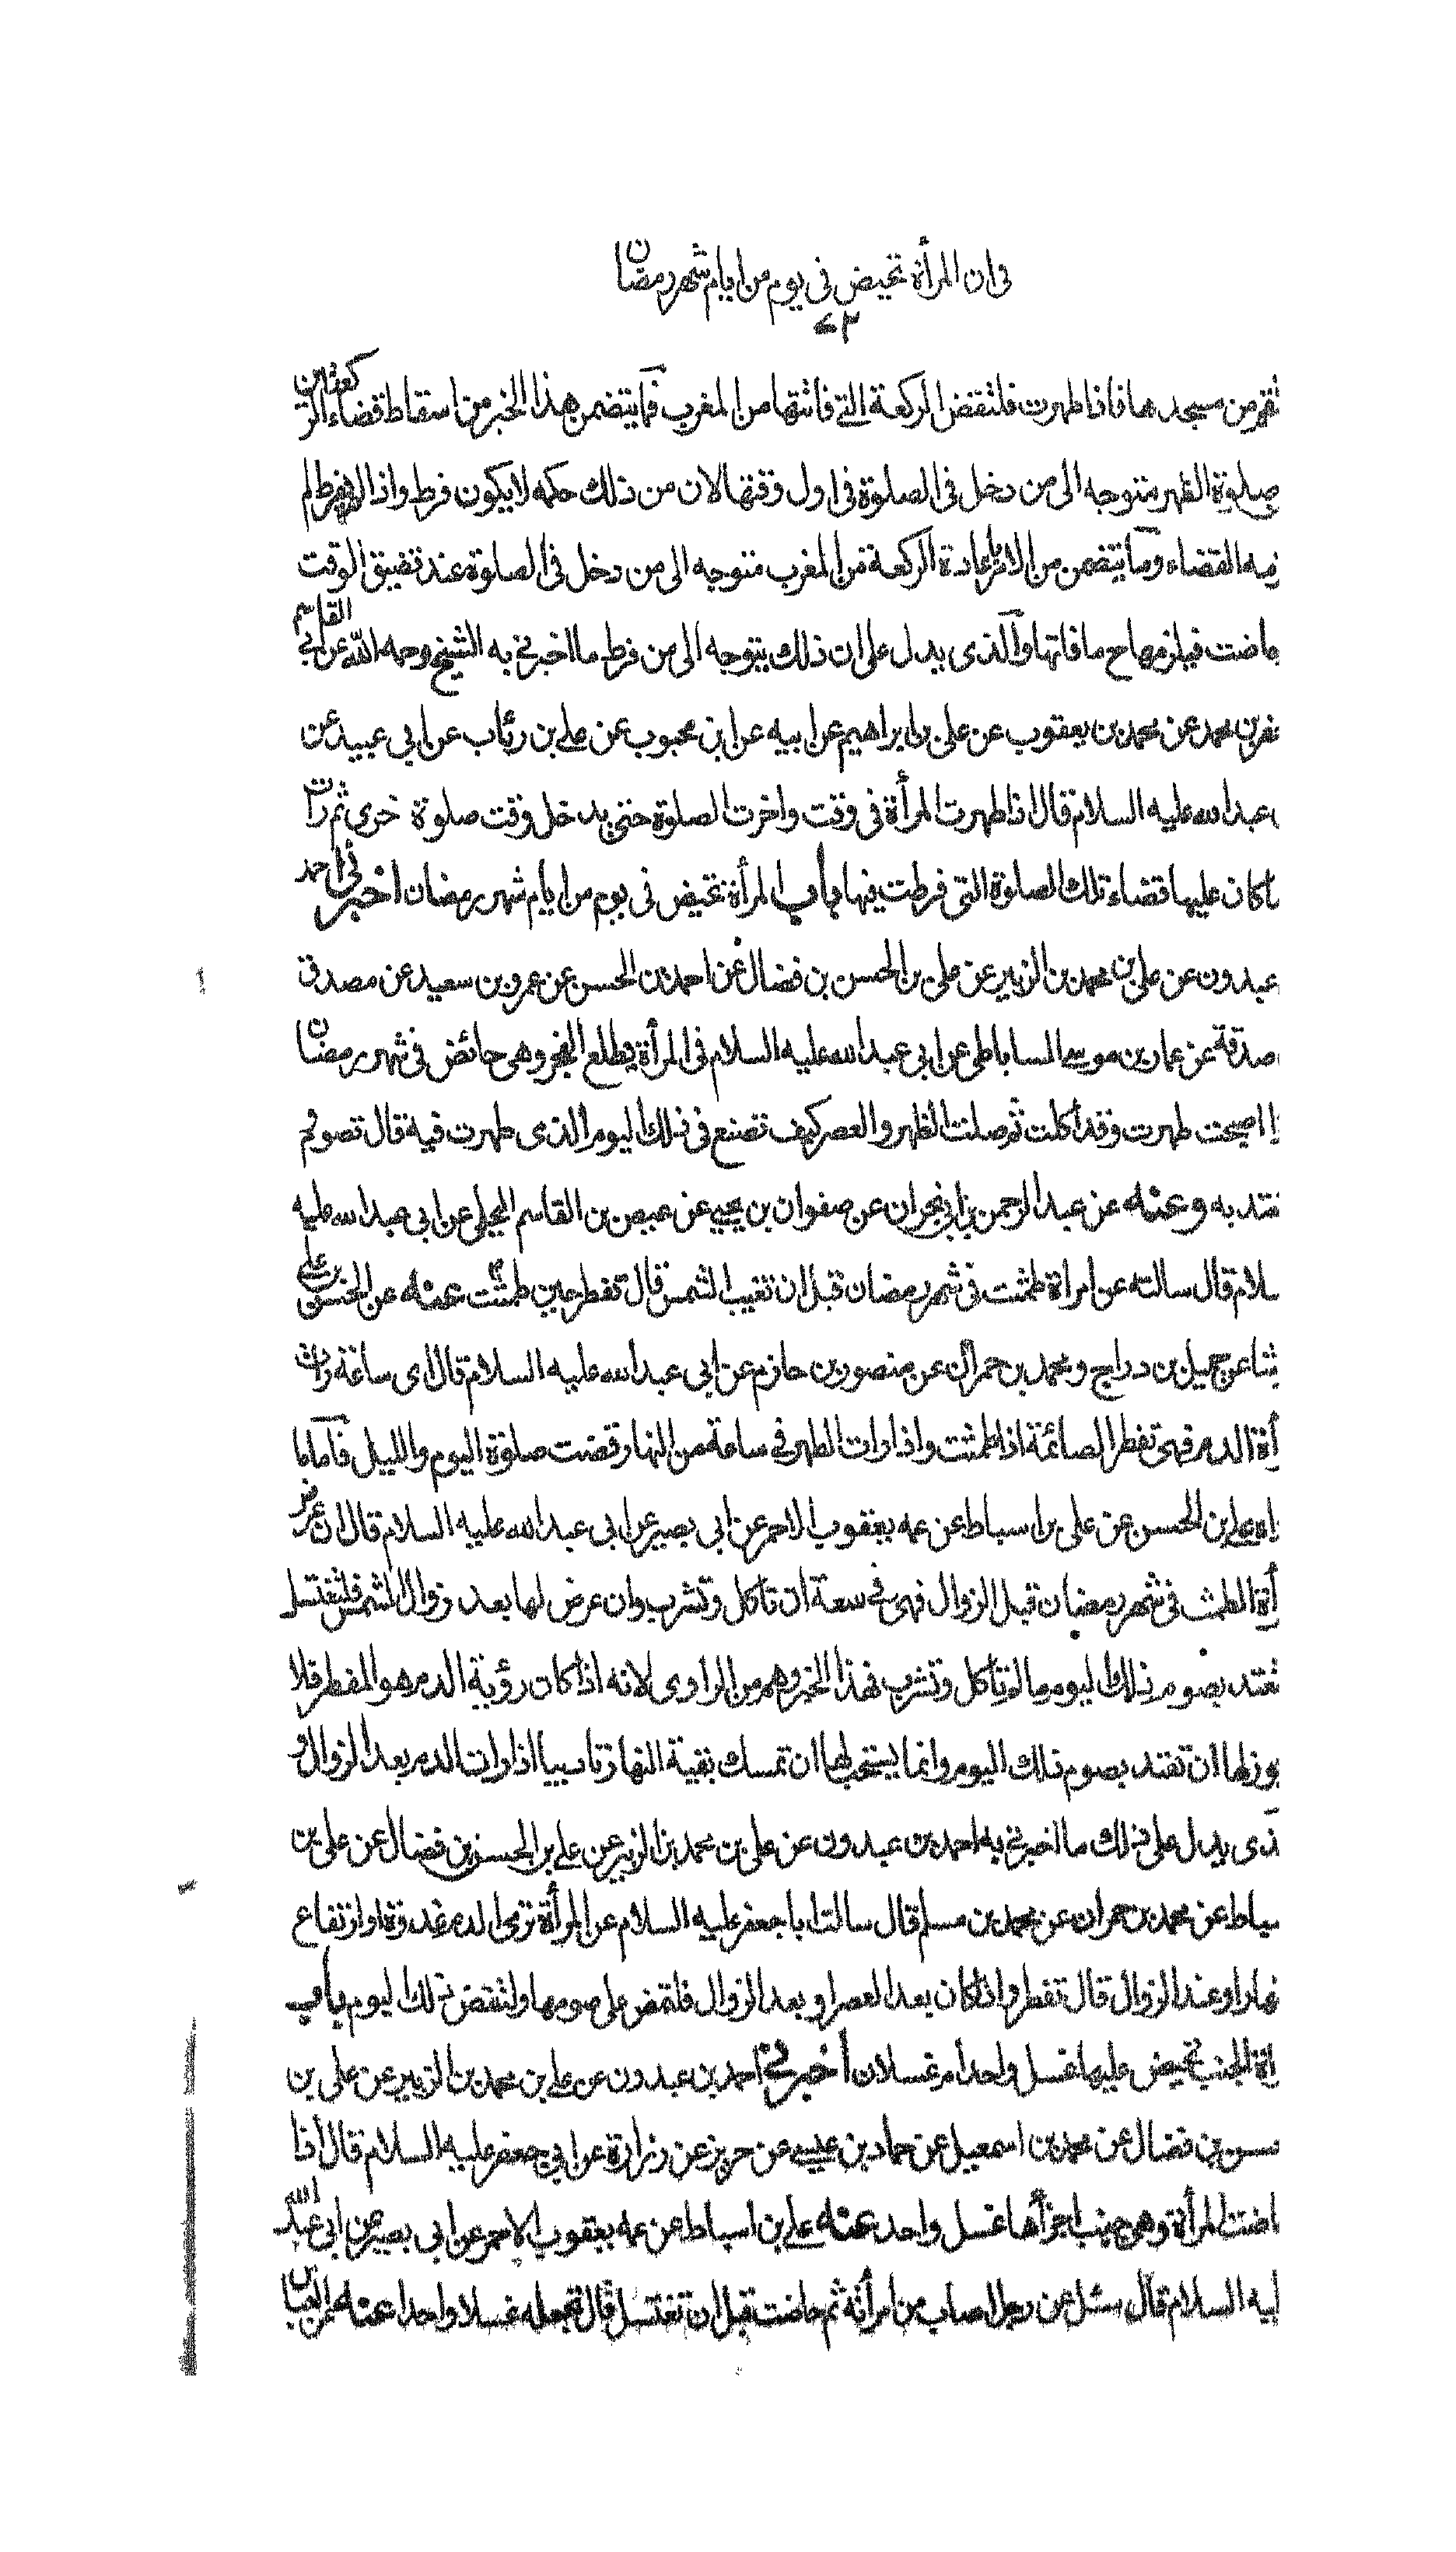 فى ان المرأة تحيض فى يوم من ايام شهر رمضان
٧٣
فلتقم من مسجدها فاذا طهرت فلتقض الركعة التى فاتتها من المغرب فما يتضمن هذا الخبر من اسقاط قضاء الركعتين
صلوة الظهر متوجه الى من دخل فى الصلوة فى اول وقتها لان من ذلك حكمه لا يكون فرط واذا لم يفرط لم
يلزمه القضاء وما يتضمن من الامر باعادة الركعة من المغرب متوجه الى من دخل فى الصلوة عند تضيق الوقت
حاضت فيلزمها ح ما فاتها والذى يدل على ان ذلك يتوجه الى من فرط ما اخبرنى به الشيخ رحمه الله عن ابى القاسم
جعفر بن محمد عن محمد بن يعقوب عن على بن ابراهيم عن ابيه عن ابن محبوب عن على بن رئاب عن ابى عبيدة عن
ابى عبد الله عليه السلام قال اذا طهرت المرأة فى وقت واخرت الصلوة حتى يدخل وقت صلوة اخرى ثم رات
دما كان عليها قضاء تلك الصلوة التى فرطت فيها باب المرأة تحيض فى يوم من ايام شهر رمضان اخبرنى احمد
عبدون عن على بن محمد بن الزبير عن على بن الحسن بن فضال عن احمد بن الحسن عن عمرو بن سعيد عن مصدق
صدقة عن عمار بن موسى الساباطى عن ابى عبد الله عليه السلام فى المرأة يطلع الفجر وهى حائض فى شهر رمضان
اصبحت طهرت وقد اكلت ثم صلت الظهر والعصر كيف تصنع فى ذلك اليوم الذى طهرت فيه قال تصوم
تعتد به وعنه عن عبد الرحمن بن ابى نجران عن صفوان بن يحيى عن عيص بن القاسم البجلى عن ابى عبد الله عليه
السلام قال سالته عن امراة طمثت فى شهر رمضان قبل ان تغيب الشمس قال تفطر حين طمثت عنه عن الحسن بن على
الوشا عن جميل بن دراج ومحمد بن حمران عن منصور بن حازم عن ابى عبد الله عليه السلام قال اى ساعة رات
المرأة الدم فهى تفطر الصائمة اذا طمثت واذا رات الطهر فى ساعة من النهار قضت صلوة اليوم والليل فاما ما
رواه على بن الحسن عن على بن اسباط عن عمه يعقوب الاحمر عن ابى بصير عن ابى عبد الله عليه السلام قال ان عرض
للمرأة الطمث فى شهر رمضان قبل الزوال فهى فى سعة ان تاكل وتشرب وان عرض لها بعد زوال الشمس فلتغتسل
ولتعتد بصوم ذلك اليوم ما لم تاكل وتشرب فهذا الخبر وهم من الراوى لانه اذا كان رؤية الدم هو المفطر فلا
يجوز لها ان تعتد بصوم ذلك اليوم وانما يستحب لها ان تمسك بقية النهار تاديبا اذا رات الدم بعد الزوال و
الذى يدل على ذلك ما اخبرنى به احمد بن عبدون عن على بن محمد بن الزبير عن على بن الحسن بن فضال عن على بن
اسباط عن محمد بن حمران عن محمد بن مسلم قال سالت ابا جعفر عليه السلام عن المرأة ترى الدم غدوة او ارتفاع
النهار او عند الزوال قال تفطر واذا كان بعد العصر او بعد الزوال فلتمض على صومها ولتقض ذلك اليوم باب
المرأة الجنب تحيض عليها غسل واحد ام غسلان اخبرنى احمد بن عبدون عن على بن محمد بن الزبير عن على بن
الحسن بن فضال عن محمد بن اسمعيل عن حماد بن عيسى عن حريز عن زرارة عن ابى جعفر عليه السلام قال اذا
حاضت المرأة وهى جنب اجزأها غسل واحد عنه على بن اسباط عن عمه يعقوب الاحمر عن ابى بصير عن ابى عبد الله
عليه السلام قال سئل عن رجل اصاب من امرأته ثم حاضت قبل ان تغتسل قال تجعله غسلا واحدا عنه عن العباس